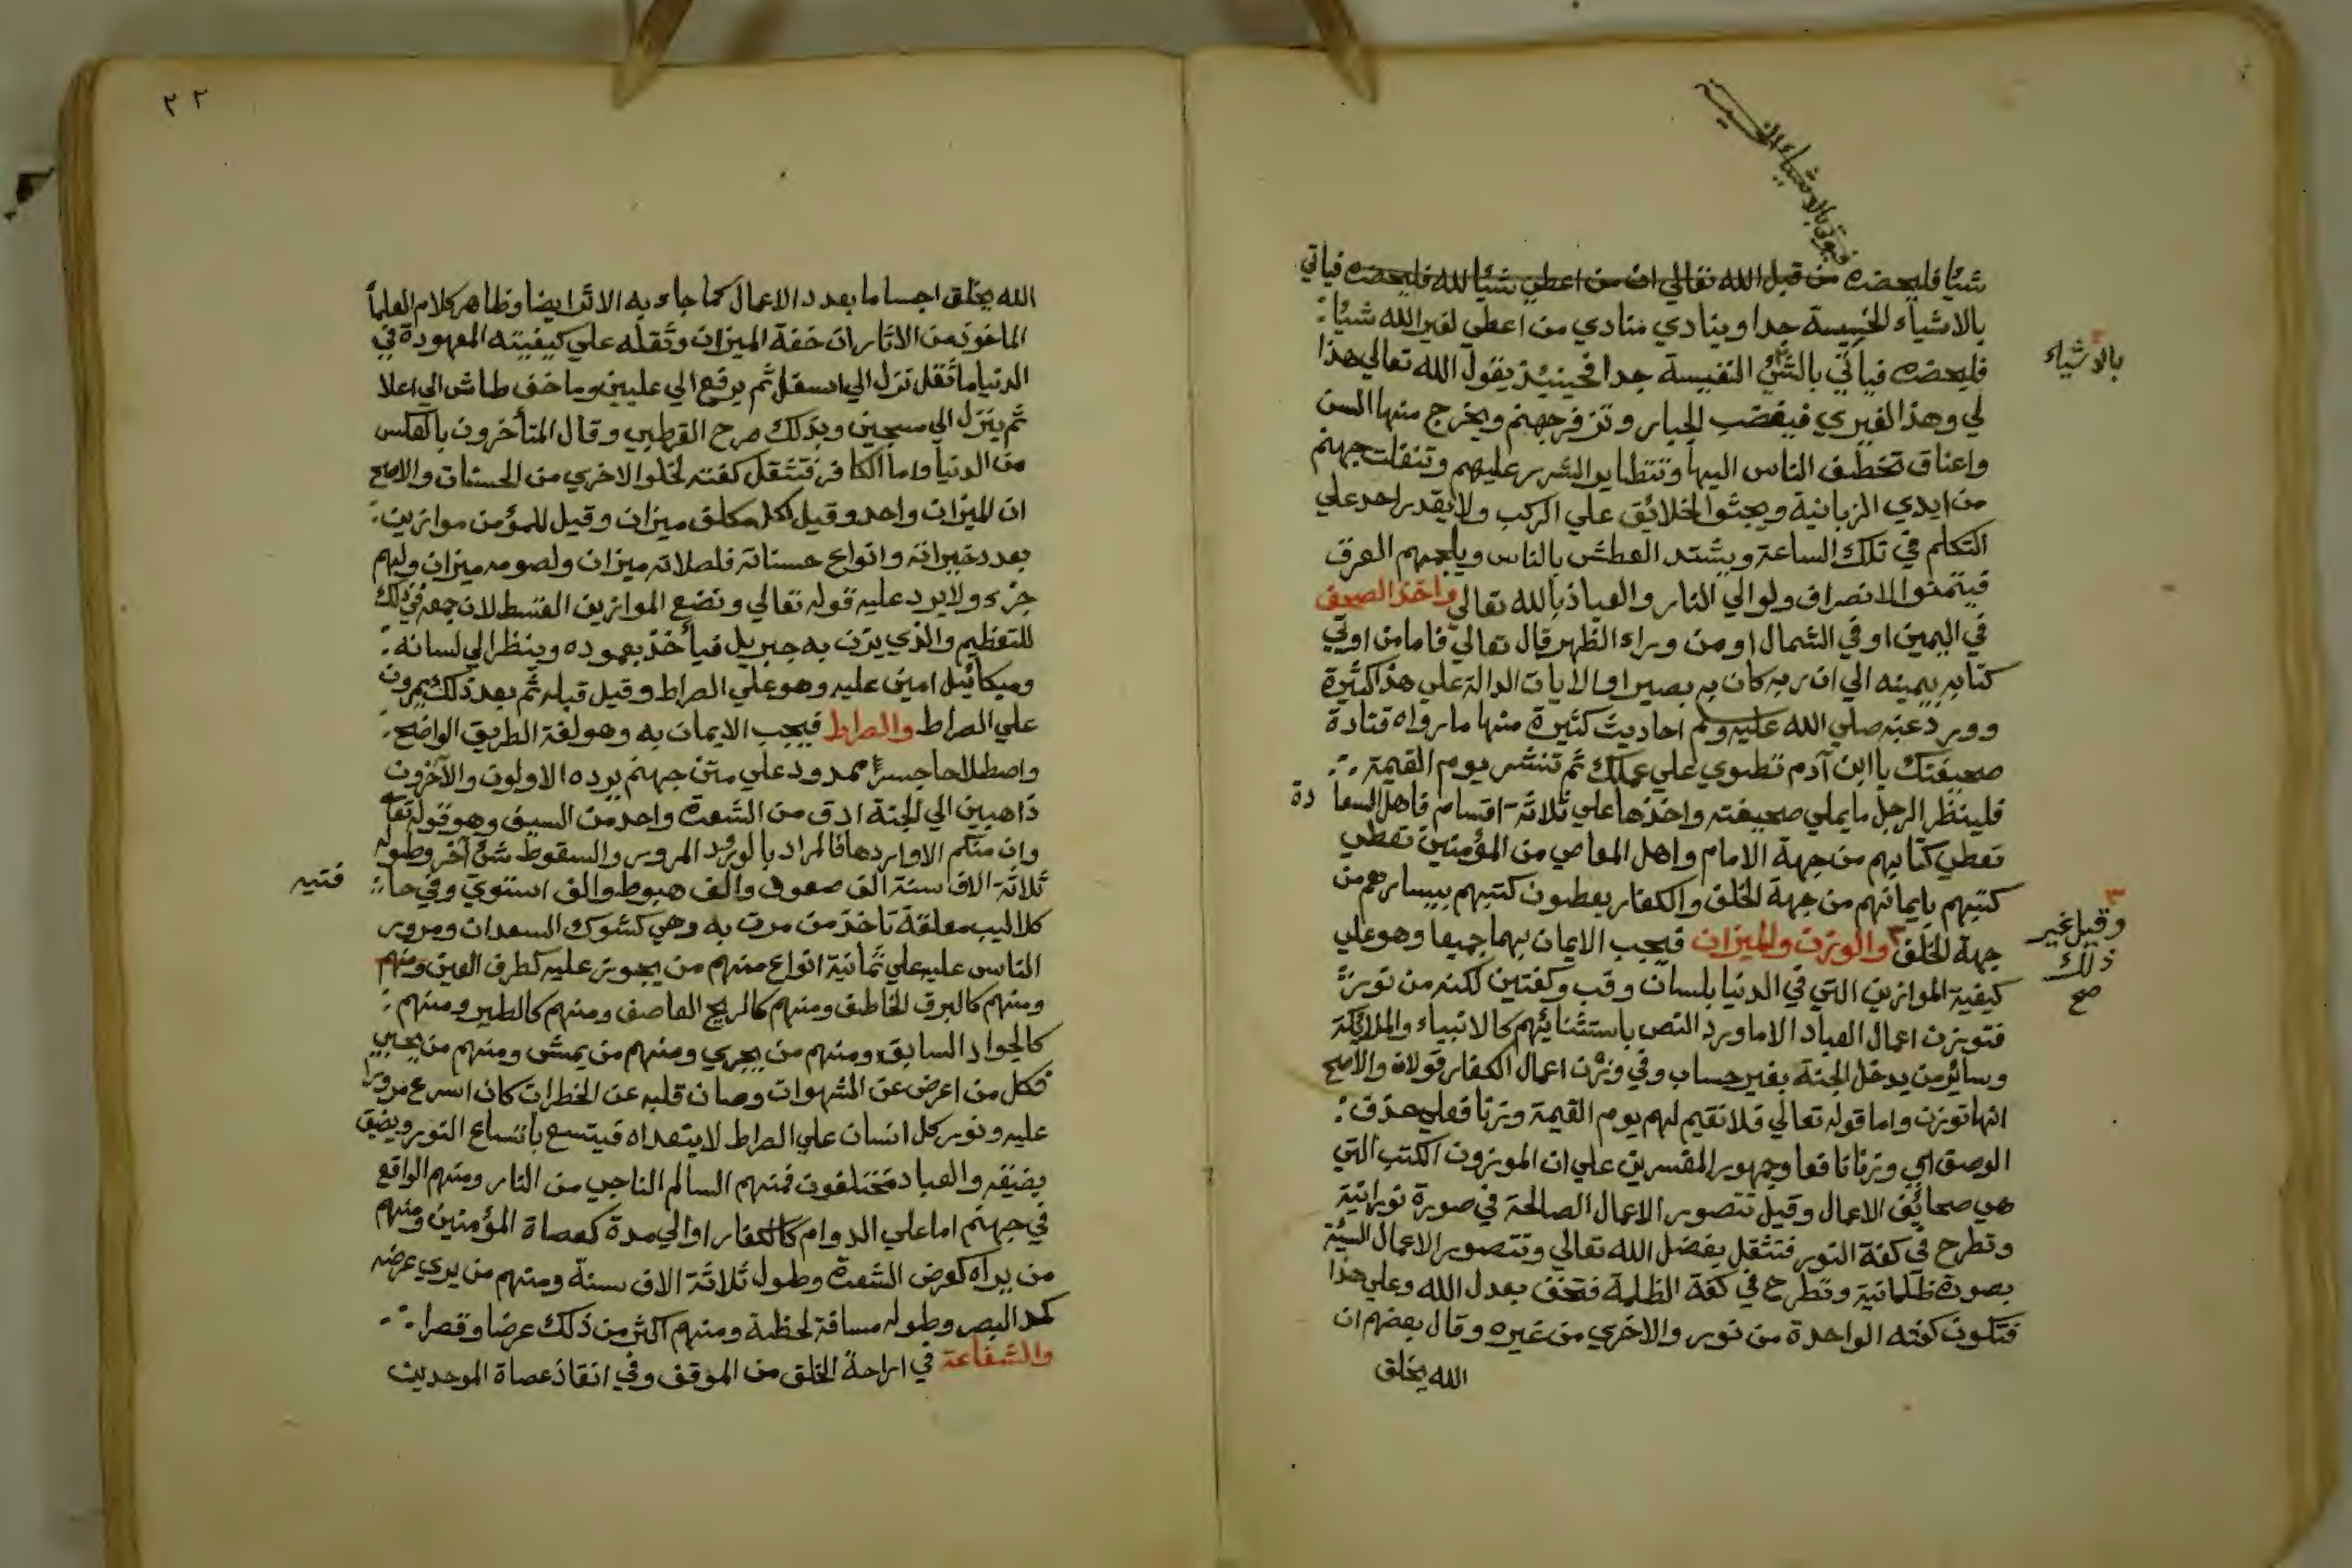 شيئا فليحضره من قبل الله تعالي ان من اعطي شيئا لله فليحضره فياتي
بالاشياء الخسيسة جدا وينادي منادي من اعطي لغير الله شيئا
فليحضره فياتي بالشئ النفيسة جدا فحينيذ يقول الله تعالي هذا
بالاشياء
لي وهذا لغيري فيغضب الجبار وتزفر جهنم ويخرج منها السن
واعناق تخطف الناس اليها وتتطاير الشرر عليهم وتنفلت جهنم
من ايدي الزبانية ويجثوا الخلائق علي الركب ولا يقدر احد علي
التكلم في تلك الساعة ويشتد العطش بالناس ويلجمهم العرق
فيتمنوا الانصراف ولو الي النار والعياذ بالله تعالي واخذ الصحف
في اليمين او في الشمال او من وراء الظهر قال تعالي فاما من اوتي
كتابه بيمينه الي ان ربه كان به بصيرا والايات الدالة علي هذا كثيرة
وورد عنه صلي الله عليه وسلم احاديث كثيرة منها ما رواه قتادة
صحيفتك يا ابن آدم تطوي علي عملك ثم تنشر يوم القيمة
فلينظر الرجل ما يملي صحيفته واخذها علي ثلاثة اقسام فاهل السعادة
تعطي كتابهم من جهة الامام واهل المعاصي من المؤمنين تعطي
كتبهم بايمانهم من جهة الخلف والكفار يعطون كتبهم بيسارهم من
جهة الخلف ٣ والوزن والميزان فيجب الايمان بهما جميعا وهو علي
٣ وقيل غير
ذلك
صح
كيفية الموازين التي في الدنيا بلسان وقب وكفتين لكنه من نور
فتوزن اعمال العباد الا ما ورد النص باستثنائهم كالانبياء والملائكة
وسائر من يدخل الجنة بغير حساب وفي وزن اعمال الكفار قولان والاصح
انها توزن واما قوله تعالي فلا نقيم لهم يوم القيمة وزنا فعلي حذف
الوصف اي وزنا نافعا وجمهور المفسرين علي ان الموزون الكتب التي
هي صحائف الاعمال وقيل تتصور الاعمال الصالحة في صورة نورانية
وتطرح في كفة النور فتثقل بفضل الله تعالي وتتصور الاعمال السيئة
بصورة ظلمانية وتطرح في كفة الظلمة فتخف بعدل الله وعلي هذا
فتكون كفته الواحدة من نور والاخري من غيره وقال بعضهم ان
الله يخلق
٢٢
الله يخلق اجساما بعدد الاعمال كما جاء به الاثر ايضا وظاهر كلام العلماء
من الاثار ان خفة الميزان وثقله علي كيفيته المعهودة في
الدنيا ما ثقل نزل الي اسفل ثم يرفع الي عليين وما خف طاش الي اعلا
ثم ينزل الي سجين وبذلك صرح القرطبي وقال المتأخرون بالعكس
من الدنيا واما الكافر فتثقل كفته لخلو الاخري من الحسنات والاصح
ان الميزان واحد وقيل لكل مكلف ميزان وقيل للمؤمن موازين
بعدد خيراته وانواع حسناته فلصلاته ميزان ولصومه ميزان ولهم
جزء ولا يرد عليه قوله تعالي ونضع الموازين القسط لان جمعه في ذلك
للتعظيم والذي يزن به جبريل فيأخذ بعموده وينظر الي لسانه
وميكائيل امين عليه وهو علي الصراط وقيل قبله ثم بعد ذلك يمرون
علي الصراط والصراط فيجب الايمان به وهو لغة الطريق الواضح
واصطلاحا جسرا ممدود علي متن جهنم يرده الاولون والآخرون
ذاهبين الي الجنة ادق من الشعرة واحد من السيف وهو قوله تعا
وان منكم الا واردها فالمراد بالورود المرور والسقوط شئ آخر وطوله
ثلاثة الاف سنة الف صعود والف هبوط والف استوي وفي حا
فتيه
كلاليب معلقة تاخذ من مرت به وهي كشوك السعدان ومرور
الناس عليه علي ثمانية انواع منهم من يجوز عليه كطرف العين ومنهم
ومنهم كالبرق الخاطف ومنهم كالريح العاصف ومنهم كالطير ومنهم
كالجواد السابق ومنهم من يجري ومنهم من يمشي ومنهم من يحبي
فكل من اعرض عن الشهوات وصان قلبه عن الخطرات كان اسرع مرورا
عليه ونور كل انسان علي الصراط لا يتعداه فيتسع باتساع النور ويضيق
بضيقه والعباد مختلفون فمنهم السالم الناجي من النار ومنهم الواقع
في جهنم اما علي الدوام كالكفار او الي مدة كعصاة المؤمنين ومنهم
من يراه كعرض الشعرة وطول ثلاثة الاف سنة ومنهم من يري عرضه
كمد البصر وطوله مسافة لحظة ومنهم اكثر من ذلك عرضا وقصرا
والشفاعة في اراحة الخلق من الموقف وفي انقاذ عصاة الموحدين